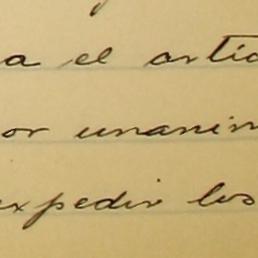 a el artic
or unanim
expedir los